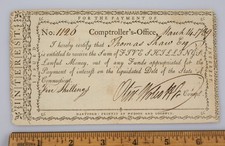 FOR THE PAYMENT OF
INTEREST.
No. 1120 Comptroller's-Office, March 14 1789
I hereby certify that Thomas Shaw Esq
is entitled to receive the Sum of FIVE SHILLINGS
Lawful Money, out of any Funds appropriated for the
Payment of interest on the liquidated Debt of the State of
Connecticut.
Five Shillings Oliv Wolcott Jr Compt
HARTFORD: PRINTED BY HUDSON AND GOODWIN.